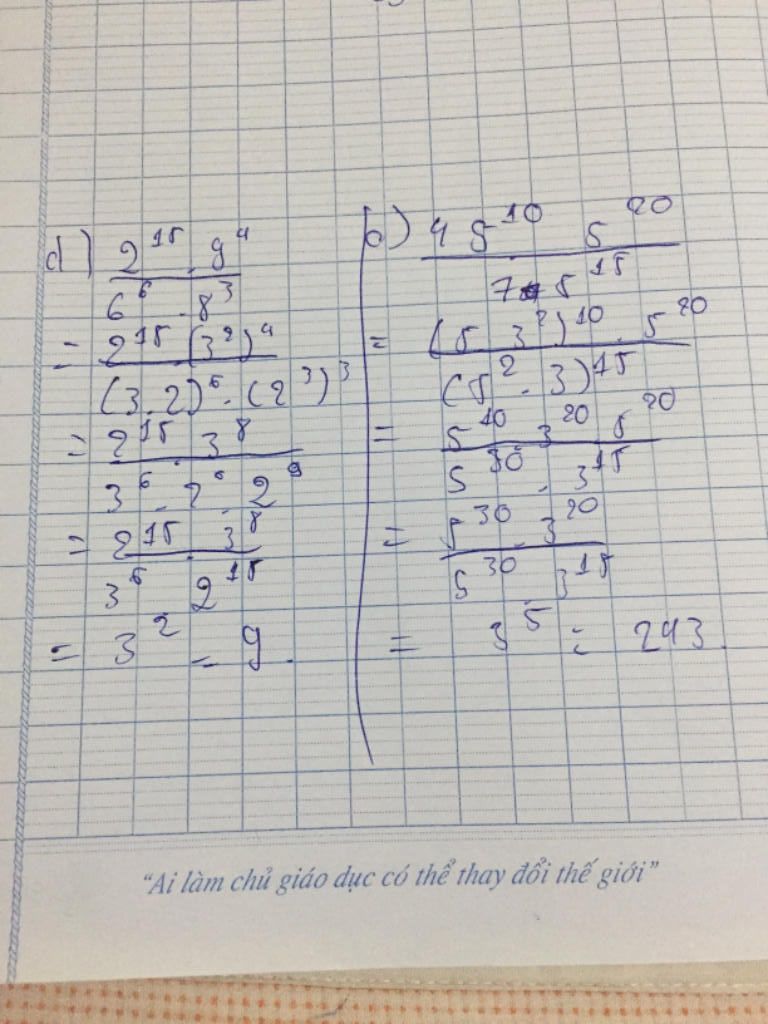 d) 2^15 . 9^4
6^6 . 8^3
= 2^15 . (3^2)^4
(3.2)^6 . (2^3)^3
= 2^15 . 3^8
3^6 . 2^6 . 2^9
= 2^15 . 3^8
3^6 . 2^15
= 3^2 = 9.
b) 45^10 . 5^20
75^15
= (5 . 3^2)^10 . 5^20
(5^2 . 3)^15
= 5^10 . 3^20 . 5^20
5^30 . 3^15
= 5^30 . 3^20
5^30 . 3^15
= 3^5 = 243.
"Ai làm chủ giáo dục có thể thay đổi thế giới"